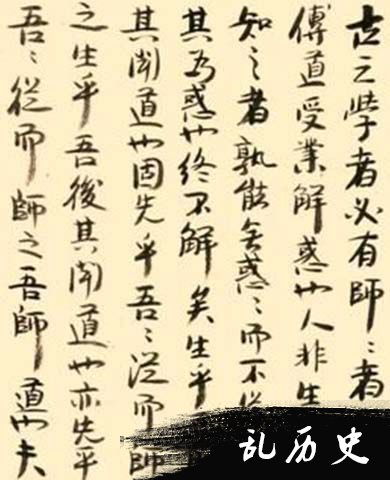 古之學者必有師〻者
傳道受業解惑也人非生
知之者孰能無惑〻而不從
其為惑也終不解矣生乎
其聞道也固先乎吾〻從而師
之生乎吾後其聞道也亦先乎
吾〻從而師之吾師道也夫
乱历史